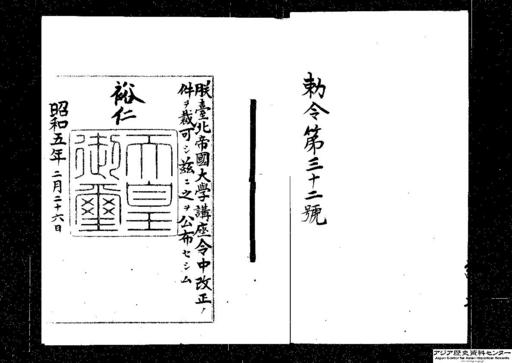 勅令第三十二號
朕臺北帝國大學講座令中改正ノ
件ヲ裁可シ茲ニ之ヲ公布セシム
裕仁
天皇
御璽
昭和五年二月二十六日
アジア歴史資料センター
Japan Center for Asian Historical Records